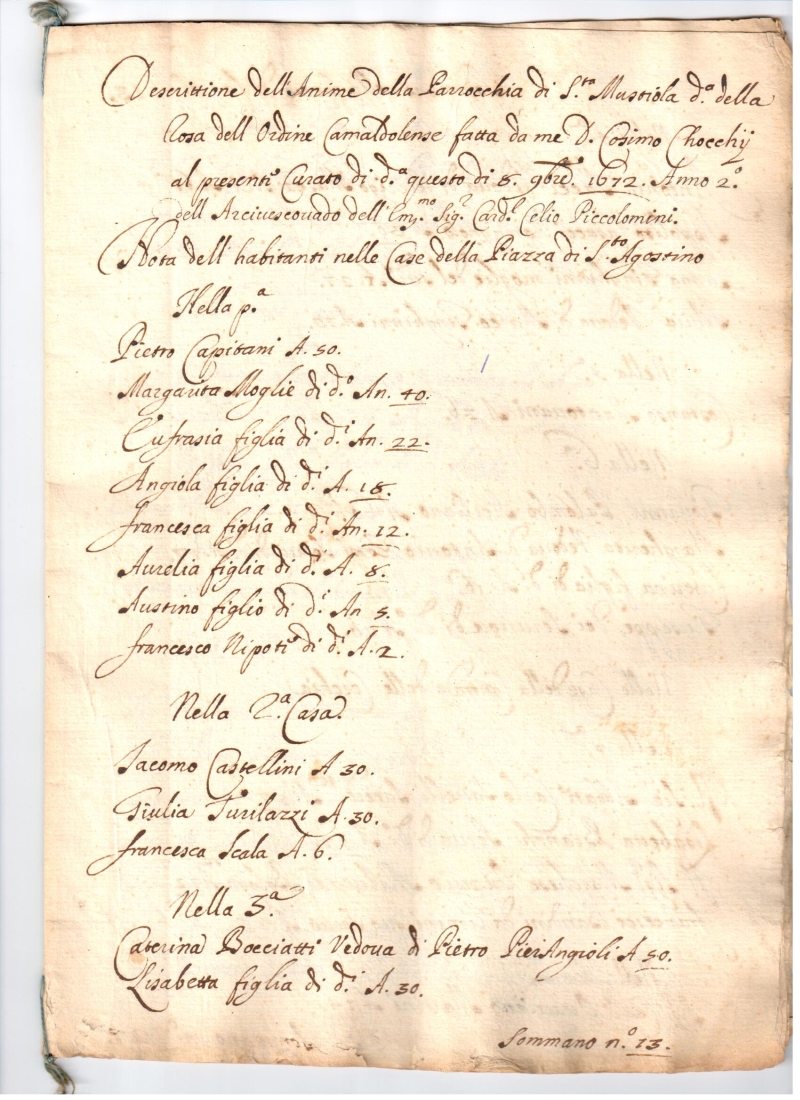 Descrittione dell'Anime della Parrocchia di S.ta Mustiola d.a della
Rosa dell Ordine Camaldolense fatta da me D. Cosimo Chocchij
al presente Curato di d.a questo di 8. 9bre. 1672. Anno 2.o
dell Arciuescouado dell'Em.mo Sig.r Card.l Celio Piccolomini.
Nota dell'habitanti nelle Case della Piazza di S.to Agostino
Nella p.a
Pietro Capitani A. 50.
Margarita Moglie di d.o An. 40.
Eufrasia figlia di d.i An. 22.
Angiola figlia di d.i A. 18.
francesca figlia di d.i An. 12.
Aurelia figlia di d.i A. 8.
Austino figlio di d.i An 5.
francesco Nipote di d.i A. 2.
Nella 2.a Casa.
Iacomo Castellini A 30.
Giulia Turilazzi A. 30.
francesca Scala A. 6.
Nella 3.a
Caterina Bocciatti Vedoua di Pietro PierAngioli A 50.
Lisabetta figlia di d.i A. 30.
Sommano n.o 13.